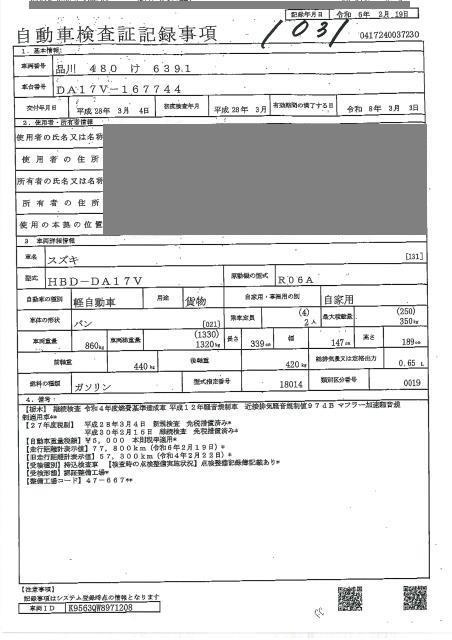 記録年月日 令和 6年 2月 19日
自動車検査証記録事項
1031
0417240037230
1. 基本情報
車両番号 品川 480 け 6391
車台番号 DA17V-167744
交付年月日 平成 28年 3月 4日 初度検査年月 平成 28年 3月 有効期間の満了する日 令和 8年 3月 3日
2. 使用者・所有者情報
使用者の氏名又は名称
使用者の住所
所有者の氏名又は名称
所有者の住所
使用の本拠の位置
3 車両詳細情報
車名 スズキ [131]
型式 HBD-DA17V 原動機の型式 R06A
自動車の種別 軽自動車 用途 貨物 自家用・事業用の別 自家用
車体の形状 バン [021] 乗車定員 (4) 2人 最大積載量 (250) 350kg
車両重量 860kg 車両総重量 (1330) 1320kg 長さ 339cm 幅 147cm 高さ 189cm
前軸重 440kg 後軸重 420kg 総排気量又は定格出力 0.65 L
燃料の種類 ガソリン 型式指定番号 18014 類別区分番号 0019
4. 備考
継続検査 令和4年度燃費基準達成車 平成12年騒音規制車 近接排気騒音規制値97dB マフラー加速騒音規
制適用車**
【27年度税制】 平成28年3月4日 新規検査 免税措置済み*
平成30年2月16日 継続検査 免税措置済み**
【自動車重量税額】¥5,000 本則税率適用*
【走行距離計表示値】77,800km(令和6年2月19日)*
【旧走行距離計表示値】57,300km(令和4年2月22日)*
【受検種別】持込検査車 【検査時の点検整備実施状況】点検整備記録簿記載あり*
【受検形態】認証整備工場*
【整備工場コード】47-667**
【注意事項】
記録事項はシステム登録時点の情報となります
車両ID K9563QW8971208